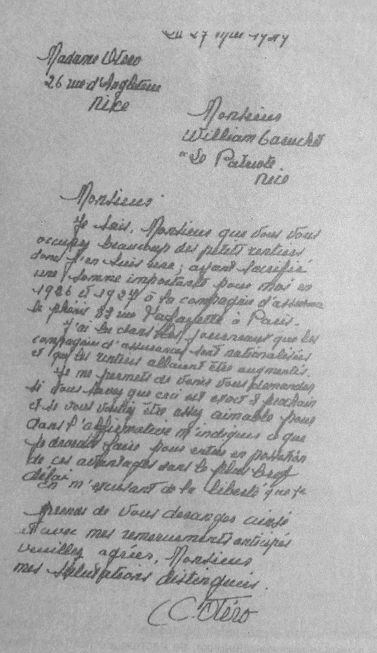 27
Madame Otero
26 rue d'Angleterre
Nice
Monsieur
William Caruchet
"Le Patriote
Nice
Monsieur
Je sais, Monsieur que vous vous
occupez beaucoup des petits rentiers
dont j'en suis une, ayant sacrifié
une somme importante pour moi en
1926 et 1927 à la compagnie d'assurance
le phenix 33 rue Lafayette à Paris.
J'ai lu dans les journeaux que les
compagnies d'assurances sont nationalisées
et que les rentiers allaient être augmentés.
Je me permets de venir vous demander
si vous savez que ceci est exact
et si vous voulez être assez aimable pour
dans l'affirmative m'indiquer ce que
je devrais faire pour entrer en possession
de ces avantages dans le plus bref
délai.
En m'excusant de la liberté que je
prends de vous deranger ainsi
et avec mes remerciements anticipés
veuillez agréer, Monsieur
mes salutations distingués.
C. Otéro